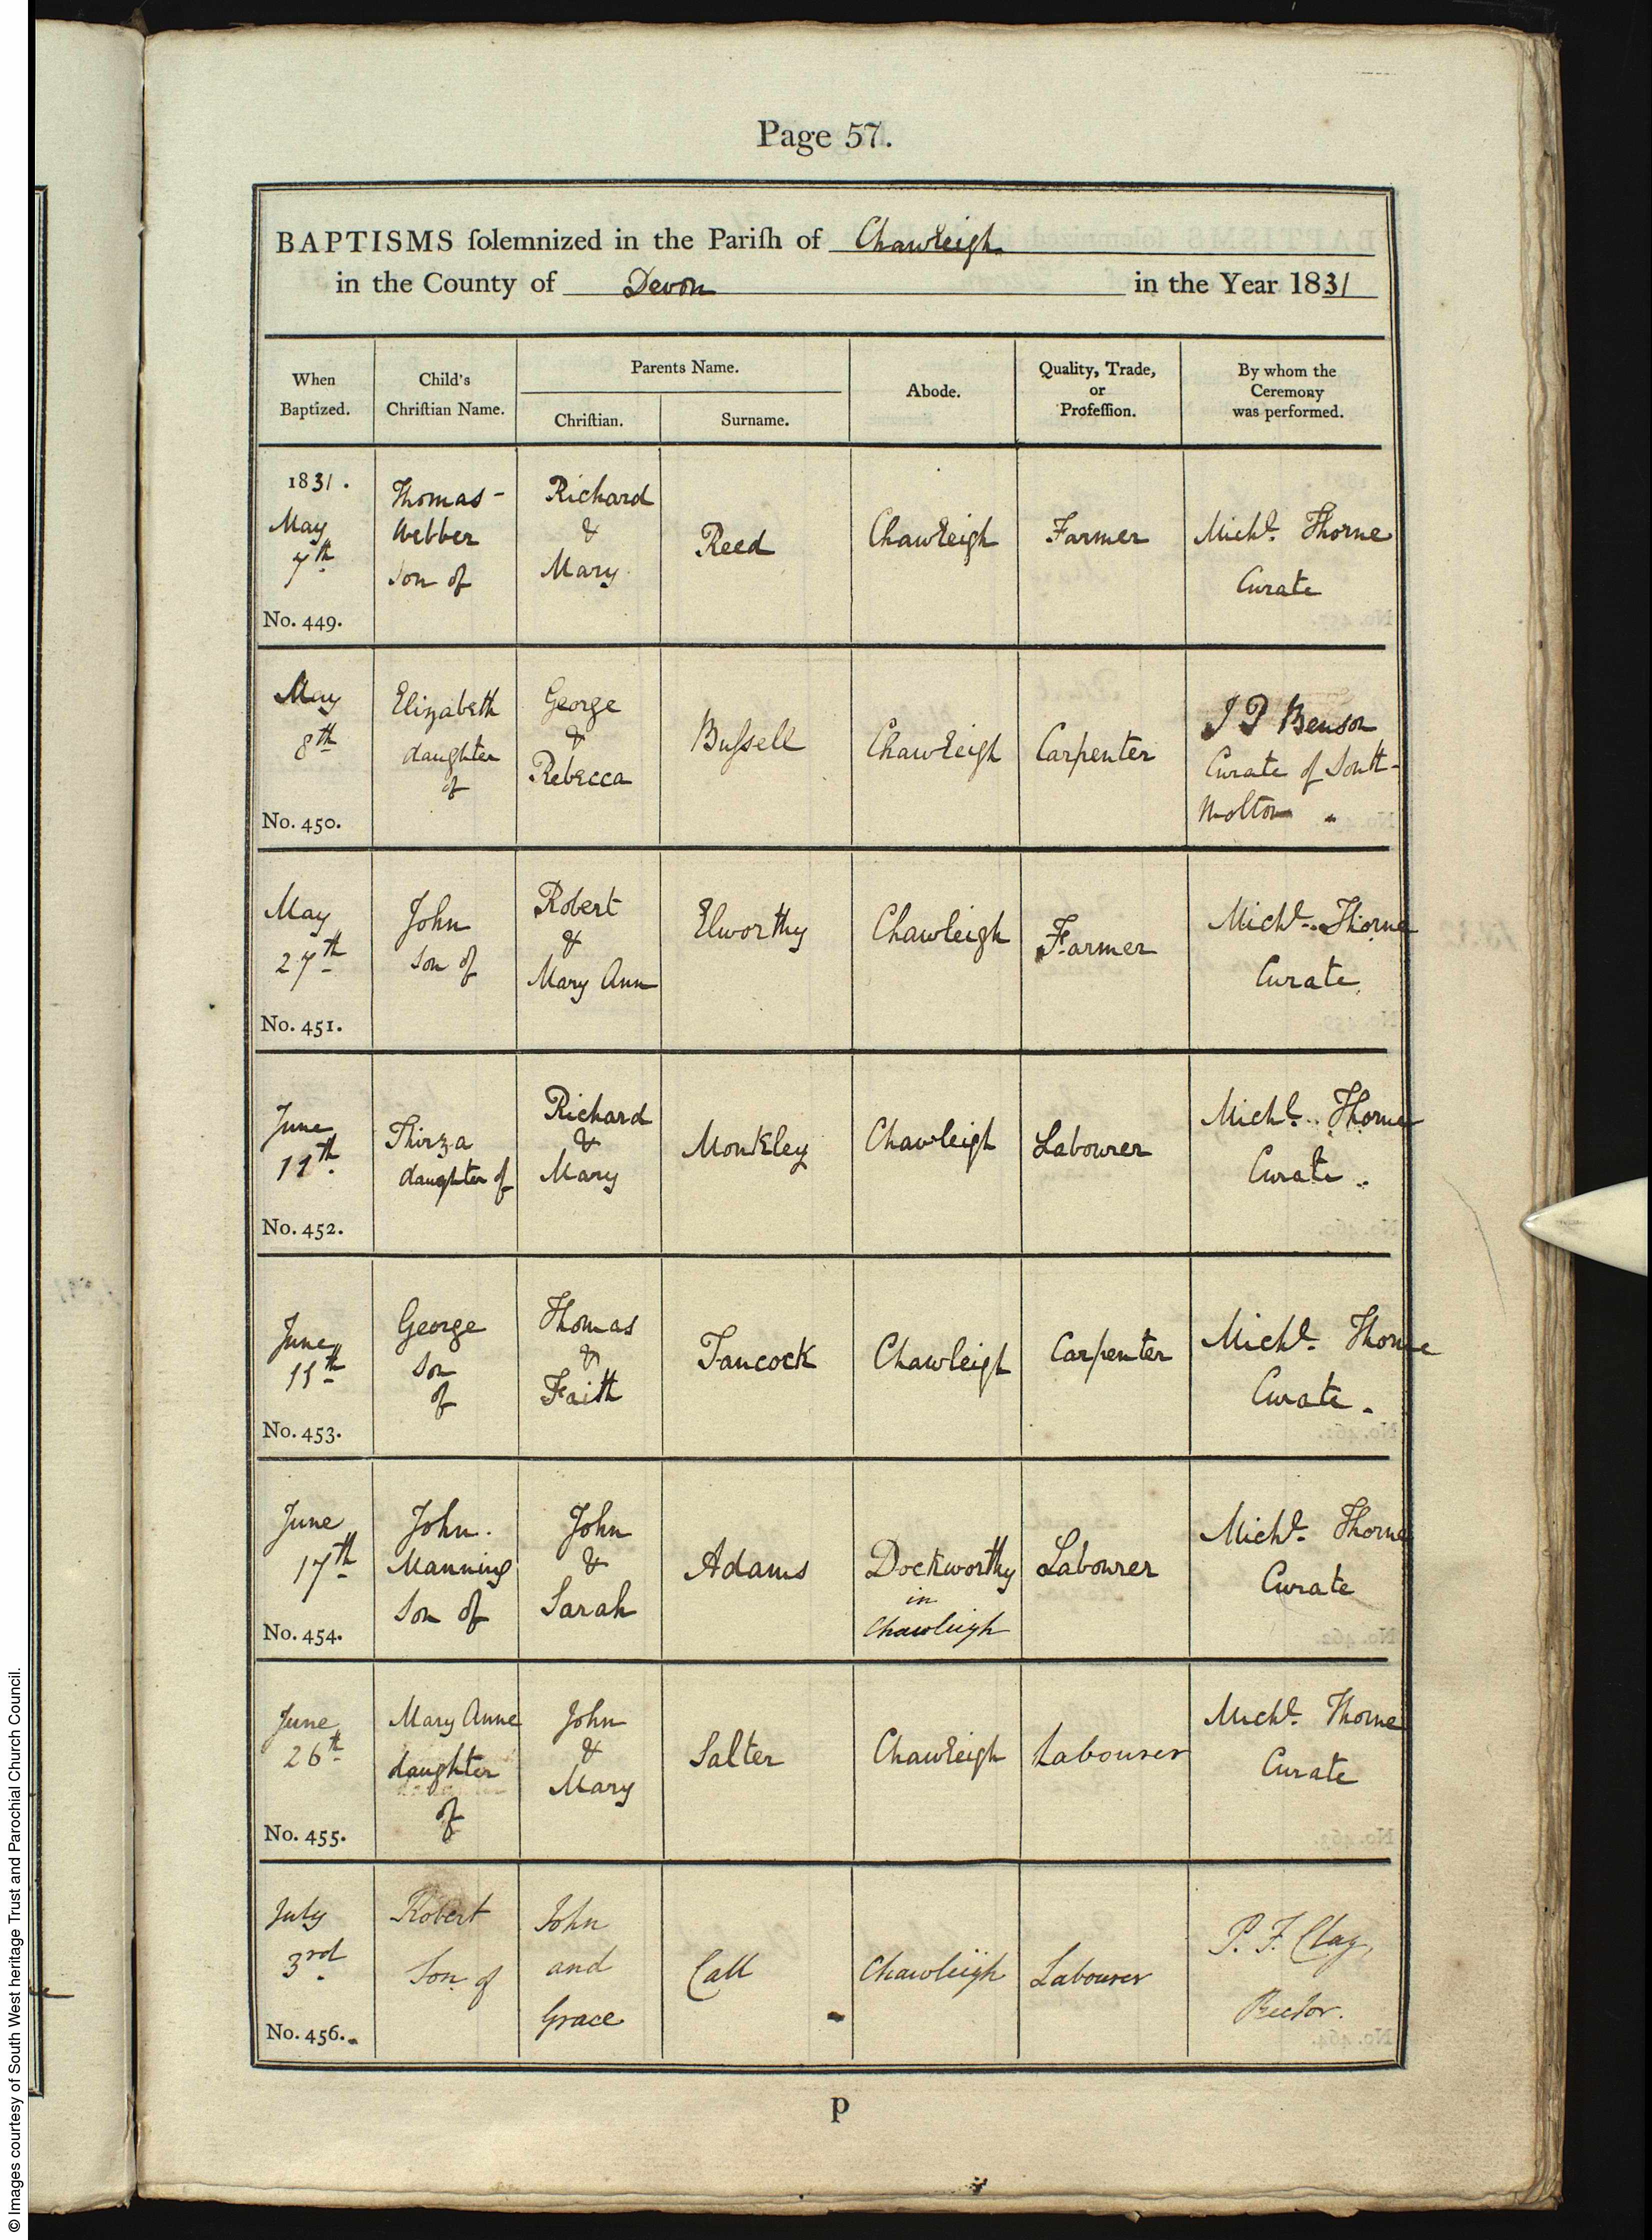 Page 57.
BAPTISMS ſolemnized in the Pariſh of Chawleigh
in the County of Devon in the Year 1831
When
Baptized.
Child's
Chriſtian Name.
Parents Name.
Chriſtian.
Surname.
Abode.
Quality, Trade,
or
Profeſſion.
By whom the
Ceremony
was performed.
1831.
May
7th
No. 449.
Thomas-
Webber
Son of
Richard
&
Mary
Reed
Chawleigh
Farmer
Michl. Thorne
Curate
May
8th
No. 450.
Elizabeth
daughter
of
George
&
Rebecca
Buſsell
Chawleigh
Carpenter
J P Benson
Curate of South-
Molton
May
27th
No. 451.
John
Son of
Robert
&
Mary Ann
Elworthy
Chawleigh
Farmer
Michl. Thorne
Curate
June
11th
No. 452.
Thirza
daughter of
Richard
&
Mary
Monkley
Chawleigh
Labourer
Michl. Thorne
Curate
June
11th
No. 453.
George
Son
of
Thomas
&
Faith
Tancock
Chawleigh
Carpenter
Michl. Thorne
Curate.
June
17th
No. 454.
John.
Manning
Son of
John
&
Sarah
Adams
Dockworthy
in
Chawleigh
Labourer
Michl. Thorne
Curate
June
26th
No. 455.
Mary Anne
daughter
of
John
&
Mary
Salter
Chawleigh
Labourer
Michl. Thorne
Curate
July
3rd
No. 456.
Robert
Son of
John
and
Grace
Call
Chawleigh
Labourer
P. F. Clay,
Rector.
P
© Images courtesy of South West heritage Trust and Parochial Church Council.